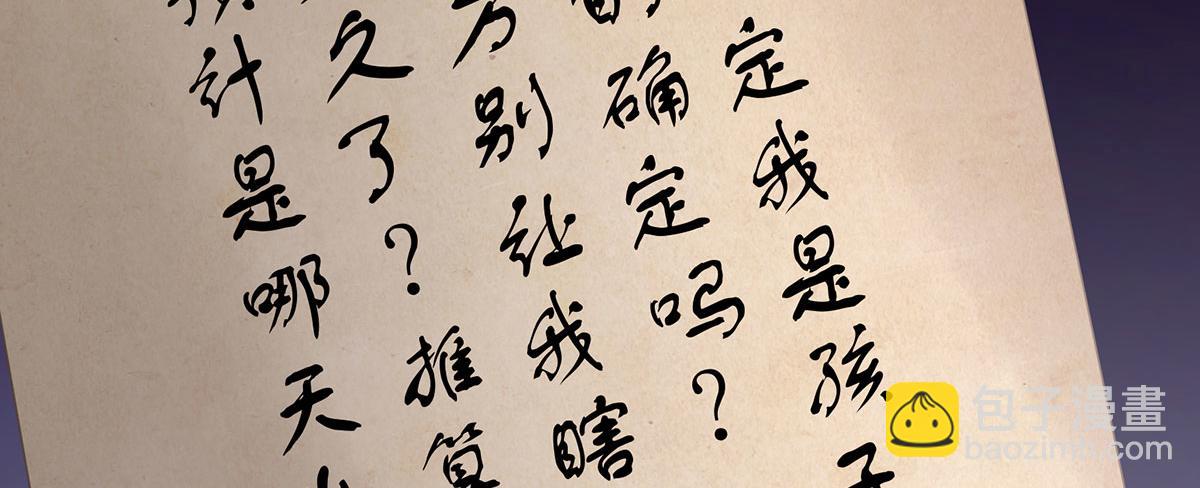 定我是孩子
的确定吗？
万别让我瞎
久了？推算
计是哪天
包子漫畫
baozimh.com